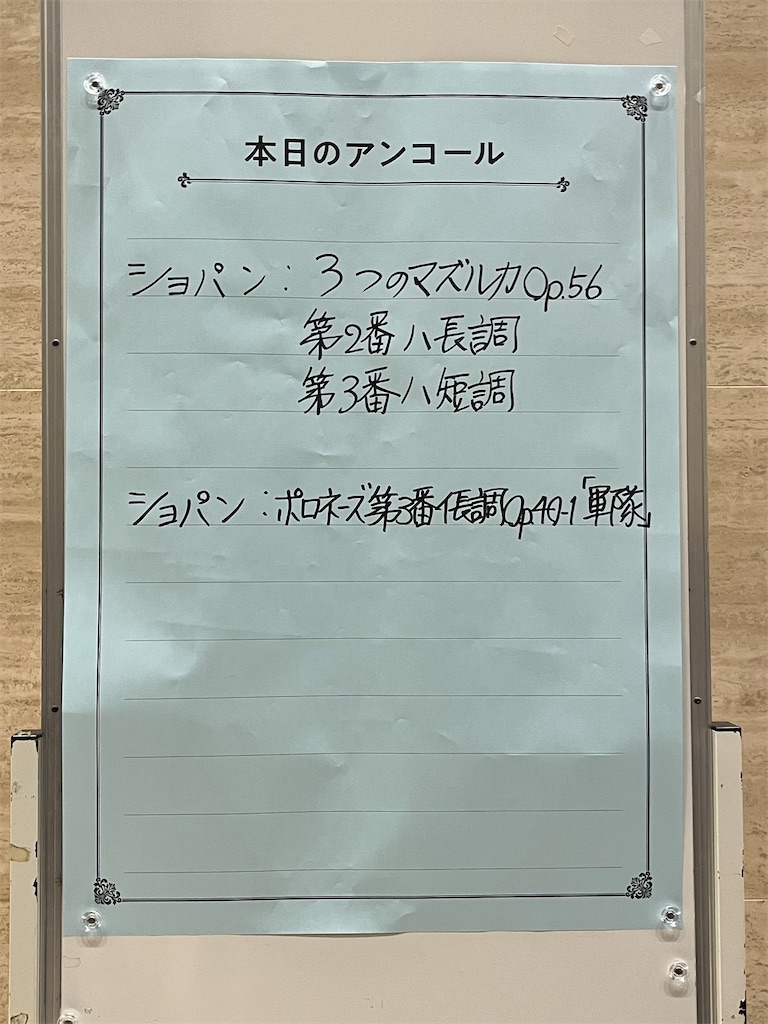 本日のアンコール
ショパン：3つのマズルカOp.56
第2番ハ長調
第3番ハ短調
ショパン：ポロネーズ第3番イ長調Op40-1「軍隊」